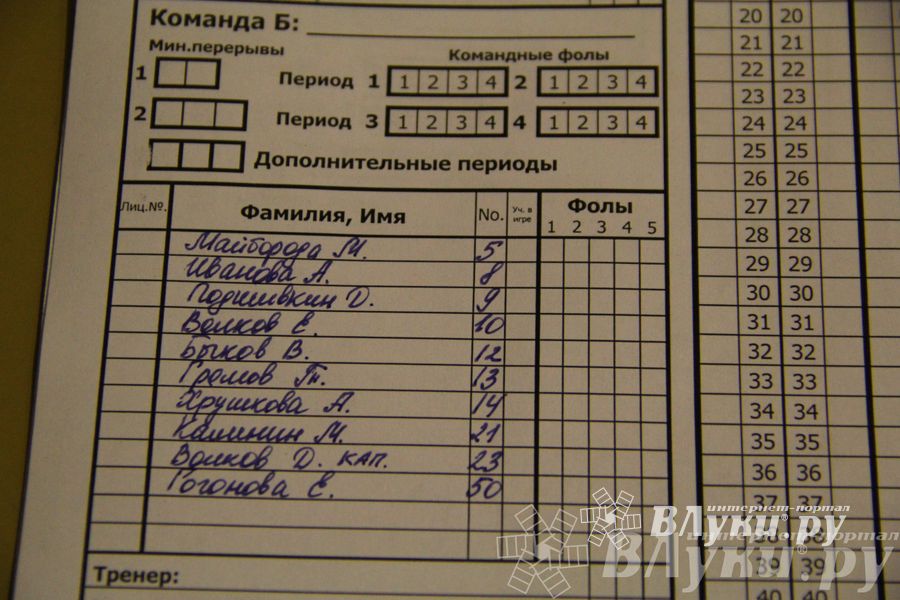 Команда Б:
Мин.перерывы
Командные фолы
1 Период 1 1 2 3 4 2 1 2 3 4
2 Период 3 1 2 3 4 4 1 2 3 4
Дополнительные периоды
Лиц.№. Фамилия, Имя No. Уч. в игре Фолы
1 2 3 4 5
Майборода М. 5
Иванова А. 8
Подшивкин Д. 9
Волков Е. 10
Быков В. 12
Громов Гл. 13
Хрушкова А. 14
Калинин М. 21
Волков Д. кап. 23
Гогонова Е. 50
Тренер:
20 20
21 21
22 22
23 23
24 24
25 25
26 26
27 27
28 28
29 29
30 30
31 31
32 32
33 33
34 34
35 35
36 36
37 37
38 38
39 39
40 40
интернет-портал
ВЛуки.ру
интернет-портал
ВЛуки.ру